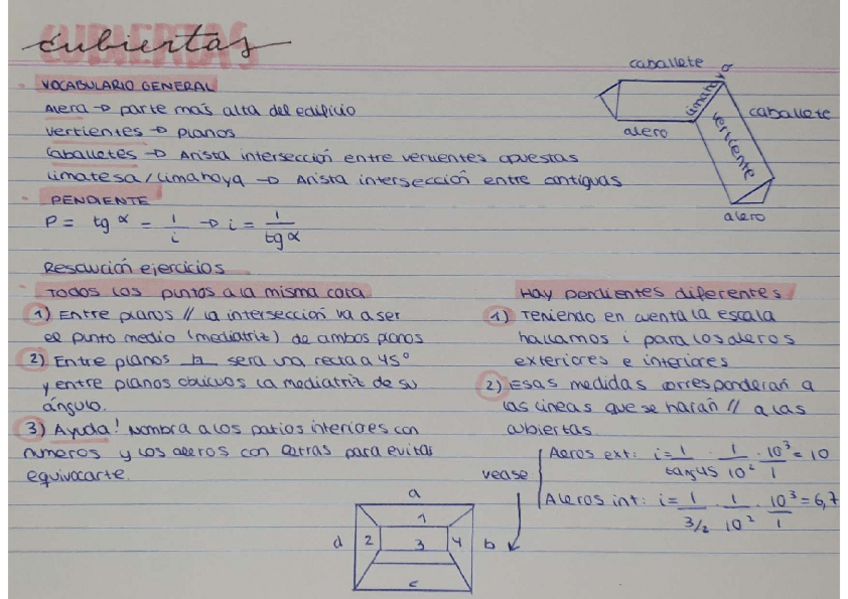 CUBIERTAS
cubiertas
VOCABULARIO GENERAL
Alera → parte más alta del edificio
vertientes → planos
Caballetes → Arista intersección entre vertientes opuestas
limatesa/limahoya → Arista intersección entre antiguas
PENDIENTE
P = tg α = 1/i → i = 1/tg α
caballete
limahoya
caballete
alero
vertiente
alero
Resolución ejercicios
Todos los puntos a la misma cota
1) Entre planos // la intersección va a ser
el punto medio (mediatriz) de ambos planos
2) Entre planos ⊥ será una recta a 45°
y entre planos oblicuos la mediatriz de su
ángulo.
3) Ayuda! Nombra a los patios interiores con
números y los aleros con letras para evitar
equivocarte.
a
1
d 2 3 4 b
c
Hay pendientes diferentes
1) Teniendo en cuenta la escala
hallamos i para los aleros
exteriores e interiores
2) Esas medidas corresponderán a
las líneas que se harán // a las
cubiertas.
vease
Aeros ext: i = 1/tang 45 · 1/10² · 10³/1 = 10
Aleros int: i = 1/3/2 · 1/10² · 10³/1 = 6,7